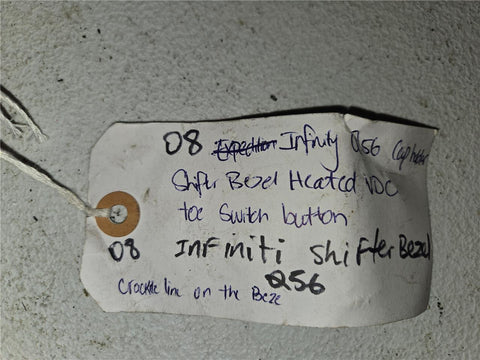 08 Expedition Infinity Q56 Cup holder
Shifter Bezel Heated VDC
toe Switch button
08 INFiniti shifter Bezel
Q56
Crackle line on the Beze